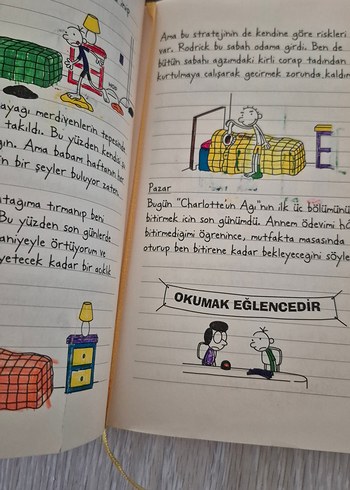 ayağı merdivenlerin tepesinde
takıldı. Bu yüzden kendisi
gın. Ama babam haftanın her
n bir şeyler buluyor zaten.
atağıma tırmanıp beni
Bu yüzden son günlerde
aniyeyle örtüyorum ve
yetecek kadar bir açıklık
Ama bu stratejinin de kendine göre riskleri
var. Rodrick bu sabah odama girdi. Ben de
bütün sabahı ağzımdaki kirli çorap tadından
kurtulmaya çalışarak geçirmek zorunda kaldım
Pazar
Bugün "Charlotte'un Ağı"nın ilk üç bölümünü
bitirmek için son günümdü. Annem ödevimi
bitirmediğimi öğrenince, mutfakta masasında
oturup ben bitirene kadar bekleyeceğini söyle
OKUMAK EĞLENCEDİR